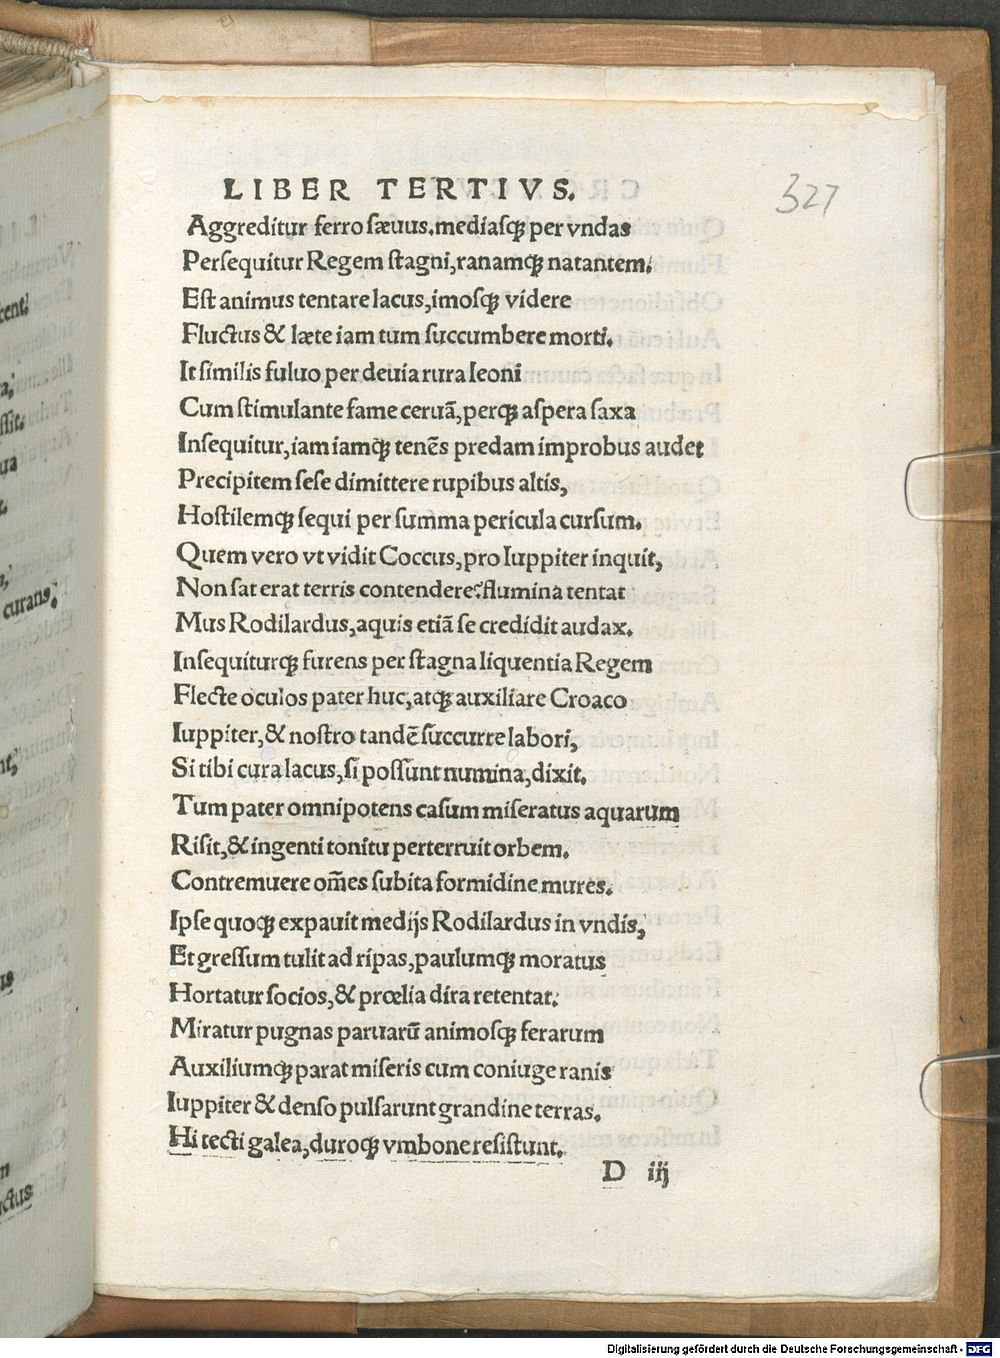 LIBER TERTIVS.
327
Aggreditur ferro sæuus.mediasq́ꝫ per vndas
Persequitur Regem stagni,ranamq́ꝫ natantem.
Est animus tentare lacus,imosq́ꝫ videre
Fluctus & læte iam tum succumbere morti.
It similis fuluo per deuia rura leoni
Cum stimulante fame ceruā,perq́ꝫ aspera saxa
Insequitur,iam iamq́ꝫ tenēs predam improbus audet
Precipitem sese dimittere rupibus altis,
Hostilemq́ꝫ sequi per summa pericula cursum.
Quem vero vt vidit Coccus,pro Iuppiter inquit,
Non sat erat terris contendere?flumina tentat
Mus Rodilardus,aquis etiā se credidit audax.
Insequiturq́ꝫ furens per stagna liquentia Regem
Flecte oculos pater huc,atq́ꝫ auxiliare Croaco
Iuppiter,& nostro tandē succurre labori,
Si tibi cura lacus,si possunt numina,dixit.
Tum pater omnipotens casum miseratus aquarum
Risit,& ingenti tonitu perterruit orbem.
Contremuere om̄es subita formidine mures.
Ipse quoq́ꝫ expauit medijs Rodilardus in vndis,
Et gressum tulit ad ripas,paulumq́ꝫ moratus
Hortatur socios,& prœlia dira retentat.
Miratur pugnas paruarū animosq́ꝫ ferarum
Auxiliumq́ꝫ parat miseris cum coniuge ranis
Iuppiter & denso pulsarunt grandine terras.
Hi tecti galea,duroq́ꝫ vmbone resistunt.
D iij
curans,
Digitalisierung gefördert durch die Deutsche Forschungsgemeinschaft - DFG